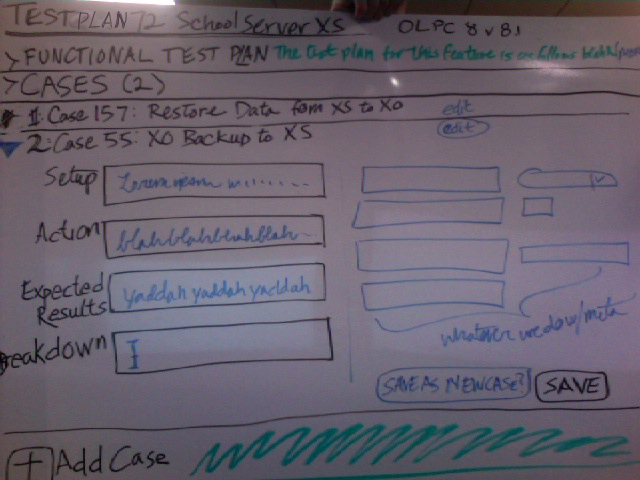 TESTPLAN 72 School Server XS OLPC 8 v 8.1
> FUNCTIONAL TEST PLAN The test plan for this feature is as follows blah
> CASES (2)
1: Case 157: Restore Data from XS to XO edit
2: Case 55: XO Backup to XS edit
Setup
Action blahblahblahblah
Expected Results yaddah yaddah yaddah
eakdown
whatever we do w/ meta
SAVE AS NEW CASE? SAVE
+ Add Case